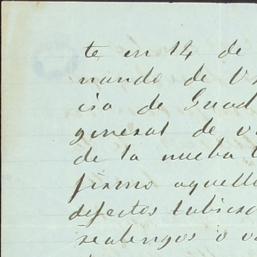 te en 14 de
nando de V
cia de Guad
general de v
de la nueba
firmo aquell
defectos tubies
realengos o v